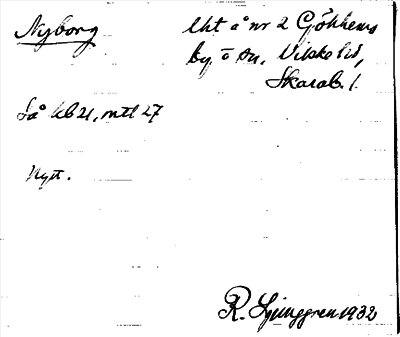 Nyborg
Lht å nr 2 Gökhems
by o sn, Vilske hd,
Skarab. l.
Så kb 21, mtl 27
Nytt.
R. Ljunggren 1932